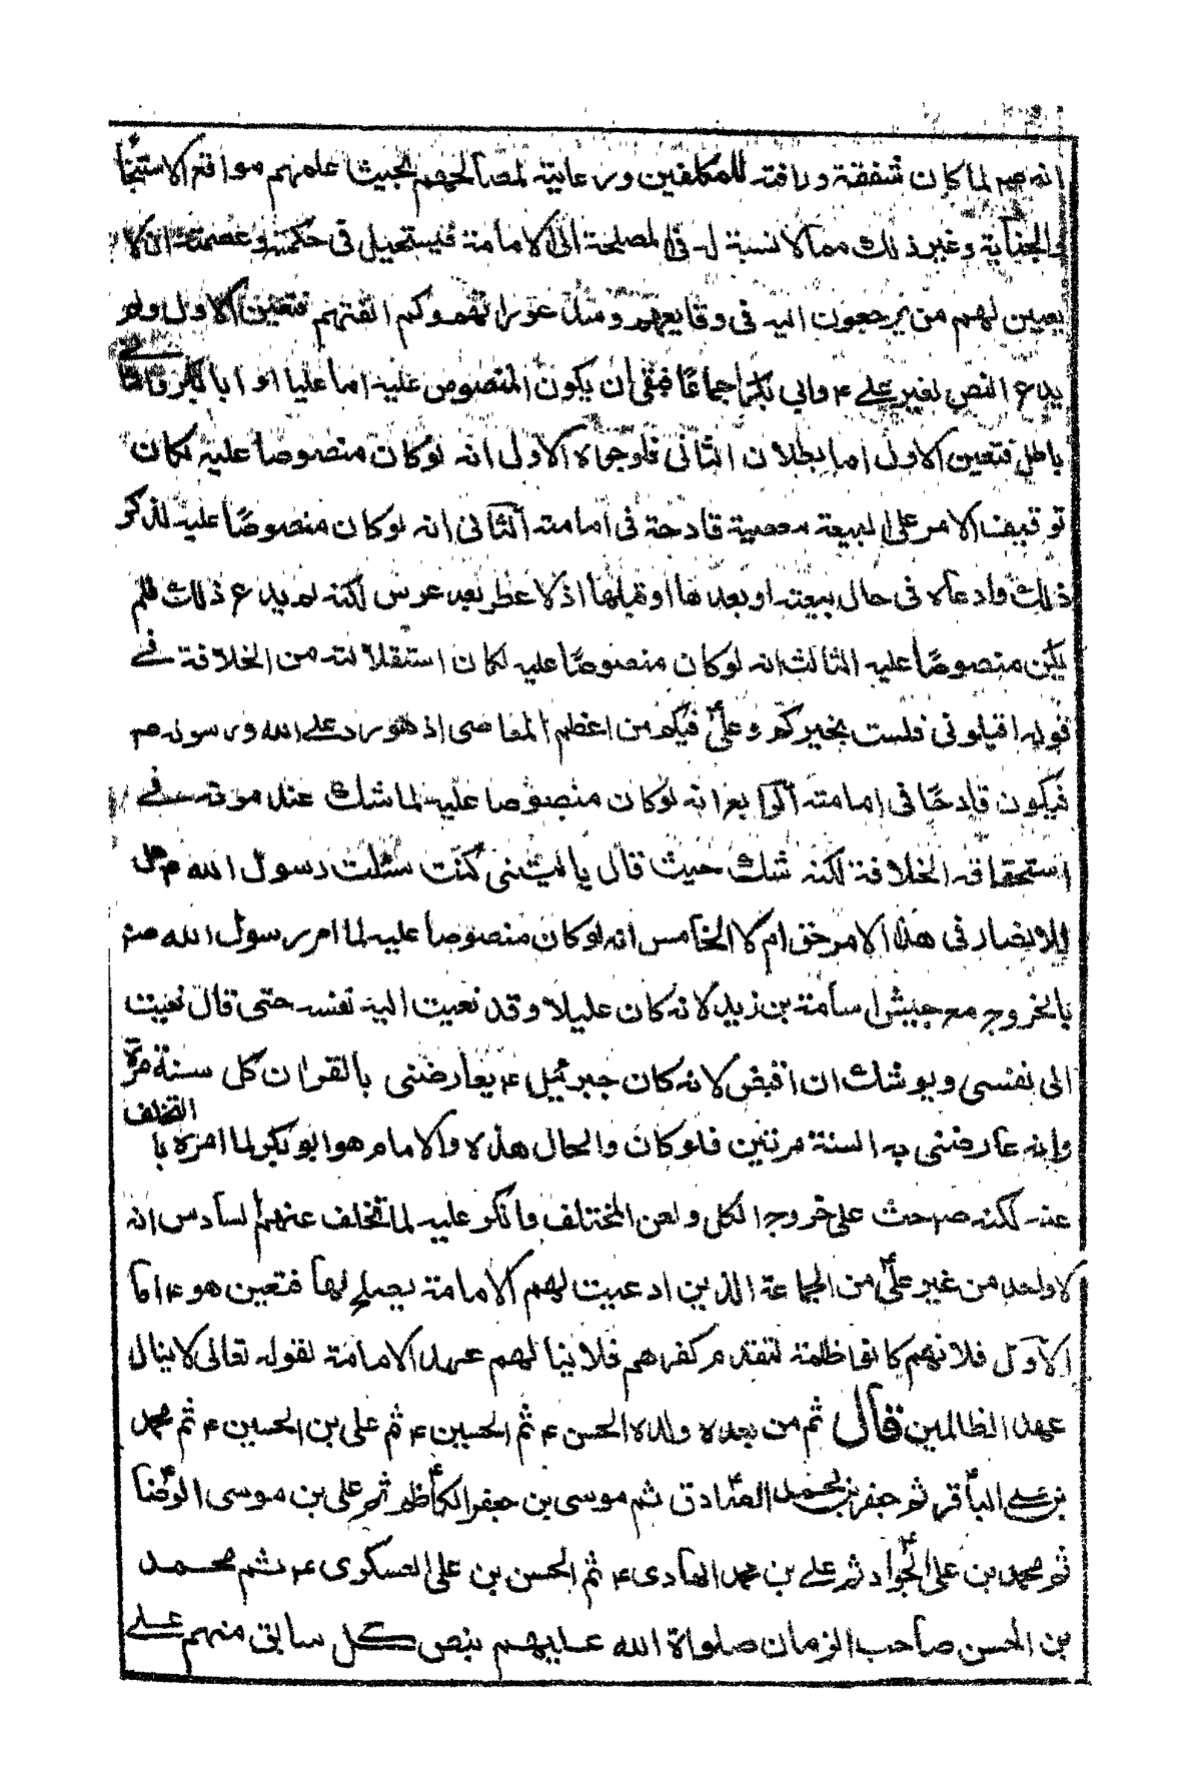 انه صم لما كان شفقة ورافته للمكلفين ورعاية لمصالحهم بحيث علمهم مواقع الاستنجا
والجنابة وغير ذلك مما لا نسبة له فى المصلحة الى الامامة فيستحيل فى حكمته وعصمته ان لا
يعين لهم من يرجعون اليه فى وقايعهم وسد عوراتهم وكم الفتهم فتعين الاول ولم
يدع النص لغير على ۴ وابى بكر اجماعا فبقى ان يكون المنصوص عليه اما عليا او ابا بكر والثانى
باطل فتعين الاول اما بطلان الثانى فلوجوه الاول انه لو كان منصوصا عليه لكان
توقيف الامر على البيعة معصية قادحة فى امامته الثانى انه لو كان منصوصًا عليه لذكر
ذلك وادعاه فى حال بيعته او بعدها او قبلها اذ لا عطر بعد عرس لكنه لم يدع ذلك فلم
يكن منصوصًا عليه الثالث انه لو كان منصوصًا عليه لكان استقلالته من الخلافة فى
قوله اقيلونى فلست بخيركم وعلىٌ فيكم من اعظم المعاصى اذ هو رد على الله ورسوله صم
فيكون قادحًا فى امامته الرابع انه لو كان منصوصا عليه لما شك عند موته فى
استحقاقه الخلافة لكنه شك حيث قال يا ليتنى كنت سئلت رسول الله ص هل
للانصار فى هذا الامر حق ام لا الخامس انه لو كان منصوصا عليه لما امر رسول الله صم
بالخروج مع جيش اسامة بن زيد لانه كان عليلا وقد نعيت اليه نفسه حتى قال نعيت
الى نفسى ويوشك ان اقبض لانه كان جبرئيل ۴ يعارضنى بالقران كل سنة مرة
وانه عارضنى به السنة مرتين فلو كان والحال هذه والامام هو ابو بكر لما امره با التخلف
عنه لكنه صم حث على خروج الكل ولعن المختلف وانكر عليه لما تخلف عنهم السادس انه
لا واحد من غير علىٌ من الجماعة الذين ادعيت لهم الامامة يصلح لها فتعين هو ۴ اما
الاول فلانهم كانوا ظلمة لتقدم كفرهم فلا ينالهم عهد الامامة لقوله تعالى لا ينال
عهد الظالمين قال ثم من بعده ولده الحسن ۴ ثم الحسين ۴ ثم على بن الحسين ۴ ثم محمد
بن على الباقر ثم جعفر بن محمد الصادق ثم موسى بن جعفر الكاظم ثم على بن موسى الرضا
ثم محمد بن على الجواد ثم على بن محمد الهادى ۴ ثم الحسن بن على العسكرى ۴ ثم محمد
بن الحسن صاحب الزمان صلواة الله عليهم بنص كل سابق منهم على